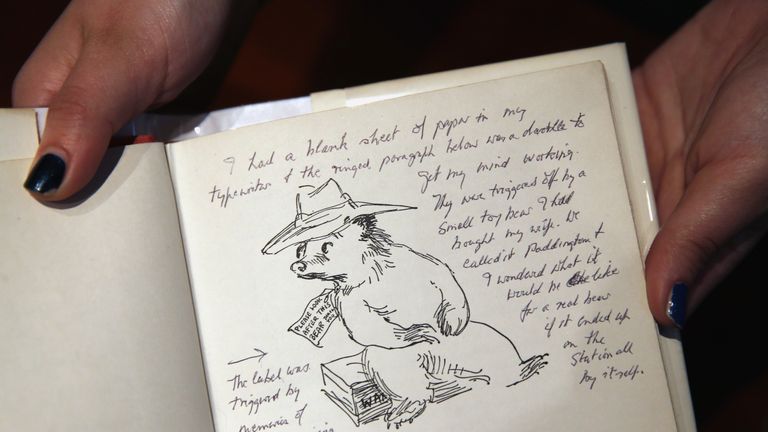 I had a blank sheet of paper in my
typewriter & the ringed paragraph below was a doodle to
get my mind working.
They were triggered off by a
small toy bear I had
bought my wife. We
called it Paddington &
I wondered what it
would be like
for a real bear
if it ended up
on the
Station all
by itself.
PLEASE LOOK
AFTER THIS
BEAR
THANK
YOU
WAN
The label was
triggered by
memories of